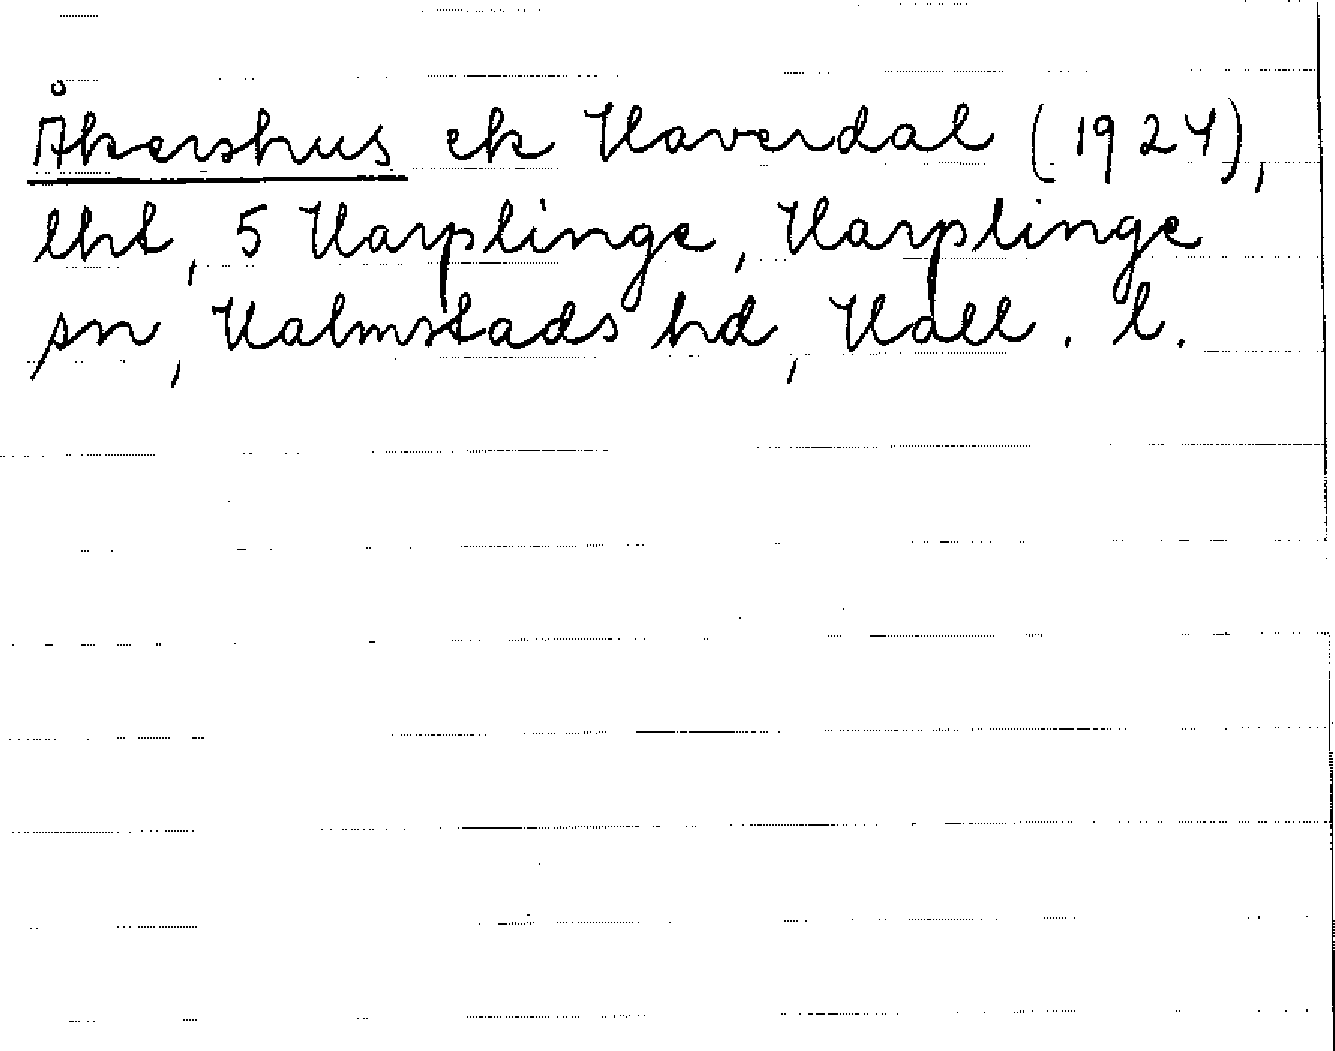 Åkershus ek Haverdal (1924),
lht, 5 Harplinge, Harplinge
sn, Halmstads hd, Hall. l.